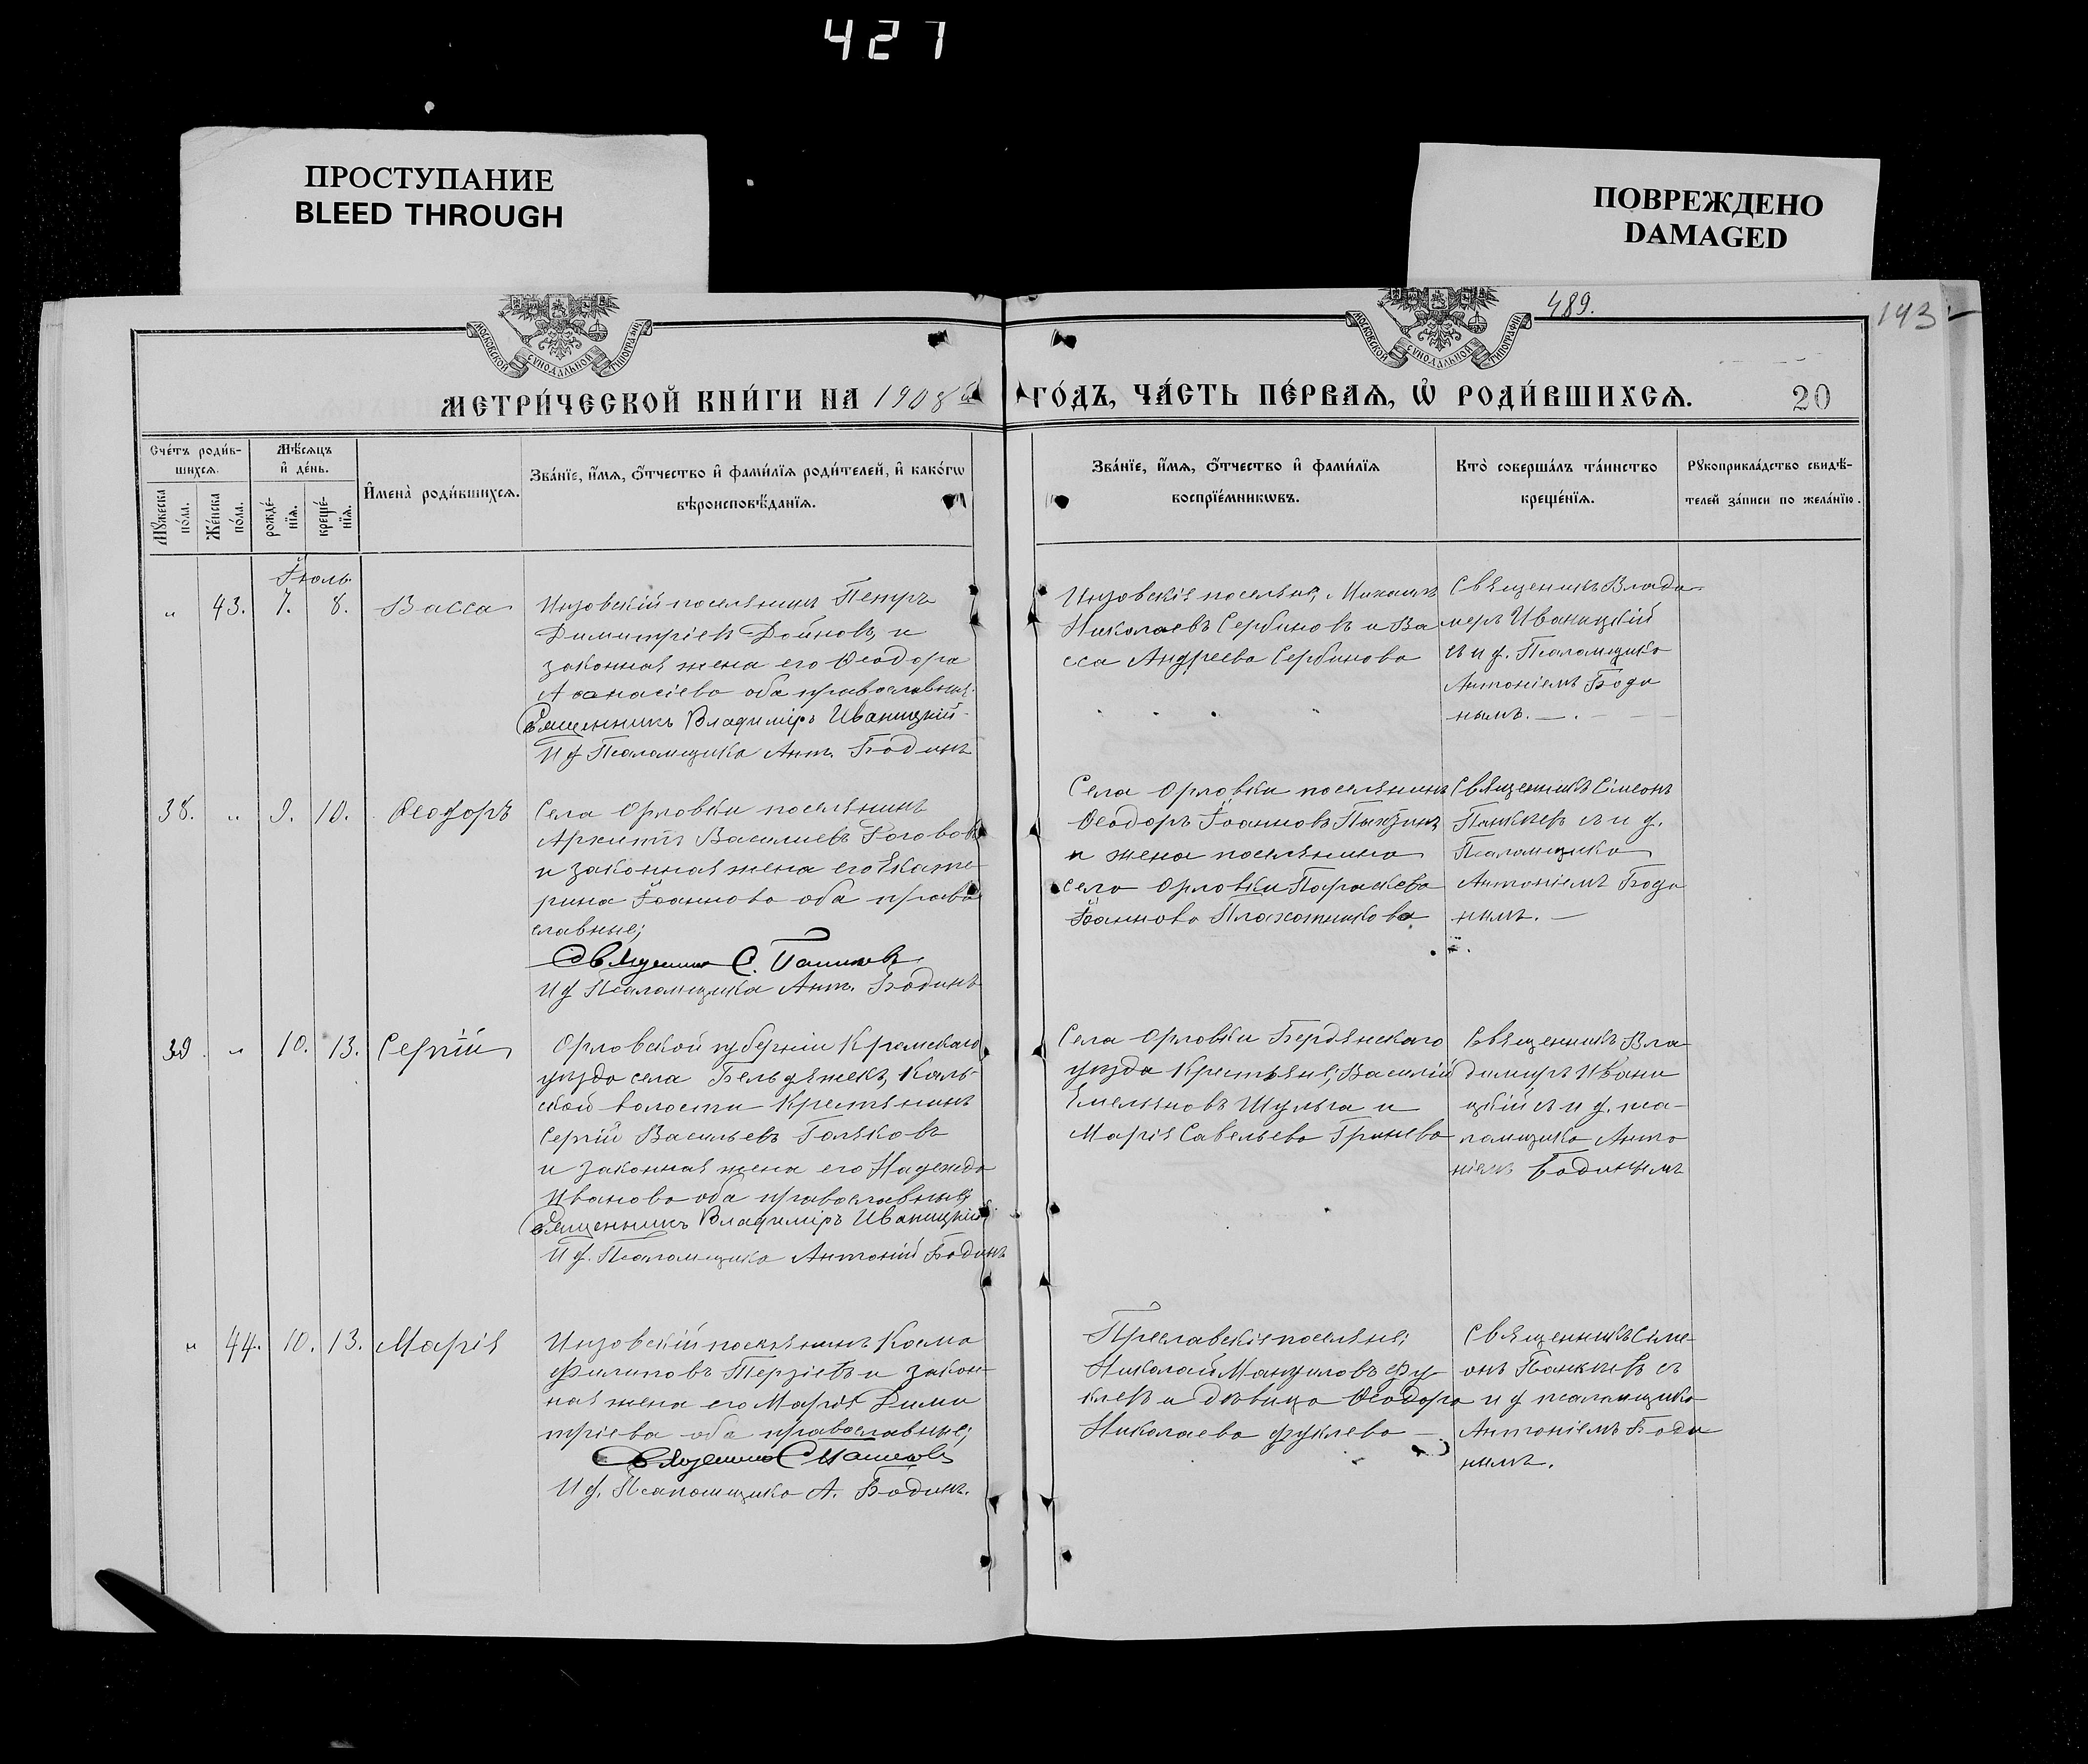 427
ПРОСТУПАНИЕ
BLEED THROUGH
ПОВРЕЖДЕНО
DAMAGED
489.
143
МОСКОВСКОЙ СѴНОДАЛЬНОЙ ТИПОГРАФІИ
МОСКОВСКОЙ СѴНОДАЛЬНОЙ ТИПОГРАФІИ
МЕТРИ́ЧЕСКОЙ КНИ́ГИ НА 1908й
ГО́ДЪ, ЧА́СТЬ ПЕ́РВАѦ, Ѡ РОДИ́ВШИХСѦ.
20
Сче́тъ роди́в-
шихсѧ.
Мѣ́сѧцъ
и҆ де́нь.
И҆мена̀ роди́вшихсѧ.
Зва́нїе, и҆́мѧ, ѻ҆́тчество и҆ фами́лїѧ роди́телей, и҆ како́гѡ
вѣроисповѣ́данїѧ.
Мꙋ́жеска по́ла.
Же́нска по́ла.
рожде́-
нїѧ.
креще́-
нїѧ.
Зва́нїе, и҆́мѧ, ѻ҆́тчество и҆ фами́лїѧ
воспрїе́мникѡвъ.
Кто̀ соверша́лъ та́инство
креще́нїѧ.
Рꙋкоприкла́дство свидѣ́-
телей за́писи по жела́нїю.
Іюль
„ 43. 7. 8. Васса
Инзовскій поселянинъ Петръ
Димитріевъ Дойновъ и
законная жена его Ѳеодора
Аѳанасіева оба православные.
Священникъ Владиміръ Иваницкій
И ф Псаломщика Ант. Бодинъ
Инзовскіе поселяне, Михаилъ
Николаевъ Сербиновъ и Ва
сса Андреева Сербинова
Священникъ Влади
міръ Иваницкій
съ и ф. Псаломщика
Антоніемъ Боди
нымъ. —.
38. „ 9. 10. Ѳеодоръ
Села Орловки поселянинъ
Василіевъ
и законная жена его Екате
рина Іоаннова оба право
славные;
Священникъ С.
И ф Псаломщика Ант. Бодинъ
Села Орловки поселянинъ
Ѳеодоръ Іоанновъ
и жена поселянина
села Орловки Параскева
Іоаннова Плахотникова
Священникъ Сімеонъ
съ и ф.
Псаломщика
Антоніемъ Боди
нымъ. —
39. „ 10. 13. Сергій
Орловской губерніи Кромскаго
уѣзда села
волости Крестьянинъ
Сергій Васильевъ Голяковъ
и законная жена его Надежда
Иванова оба православные;
Священникъ Владиміръ Иваницкій
И ф. Псаломщика Антоній Бодинъ
Села Орловки Бердянскаго
уѣзда Крестьяне; Василій
Емельяновъ Шульга и
Марія Савельева Гринева
Священникъ Вла
димиръ Ивани
цкій съ и ф. пса-
ломщика Анто
ніемъ Бодинымъ
„ 44. 10. 13. Марія
Инзовскій поселянинъ Косма
Филиповъ Терзіевъ и закон-
ная жена его Марія Дими
тріева оба православные;
Священникъ С
И ф. Псаломщика А. Бодинъ.
Преславскіе поселяне;
Николай Мануиловъ Фу
клевъ и дѣвица Ѳеодора
Николаева Фуклева —
Священникъ Сіме-
онъ съ
и ф псаломщика
Антоніемъ Боди
нымъ.